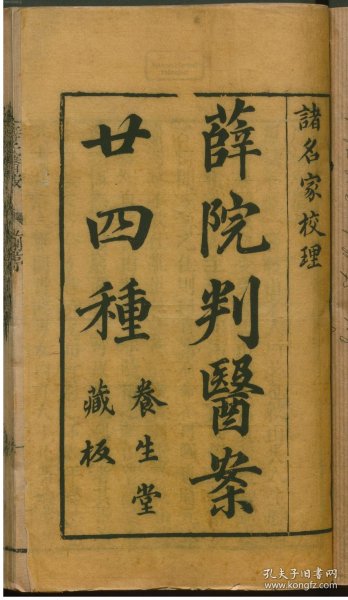 諸名家校理
薛院判醫案
廿四種
養生堂
藏板
孔夫子旧书网
www.kongfz.com